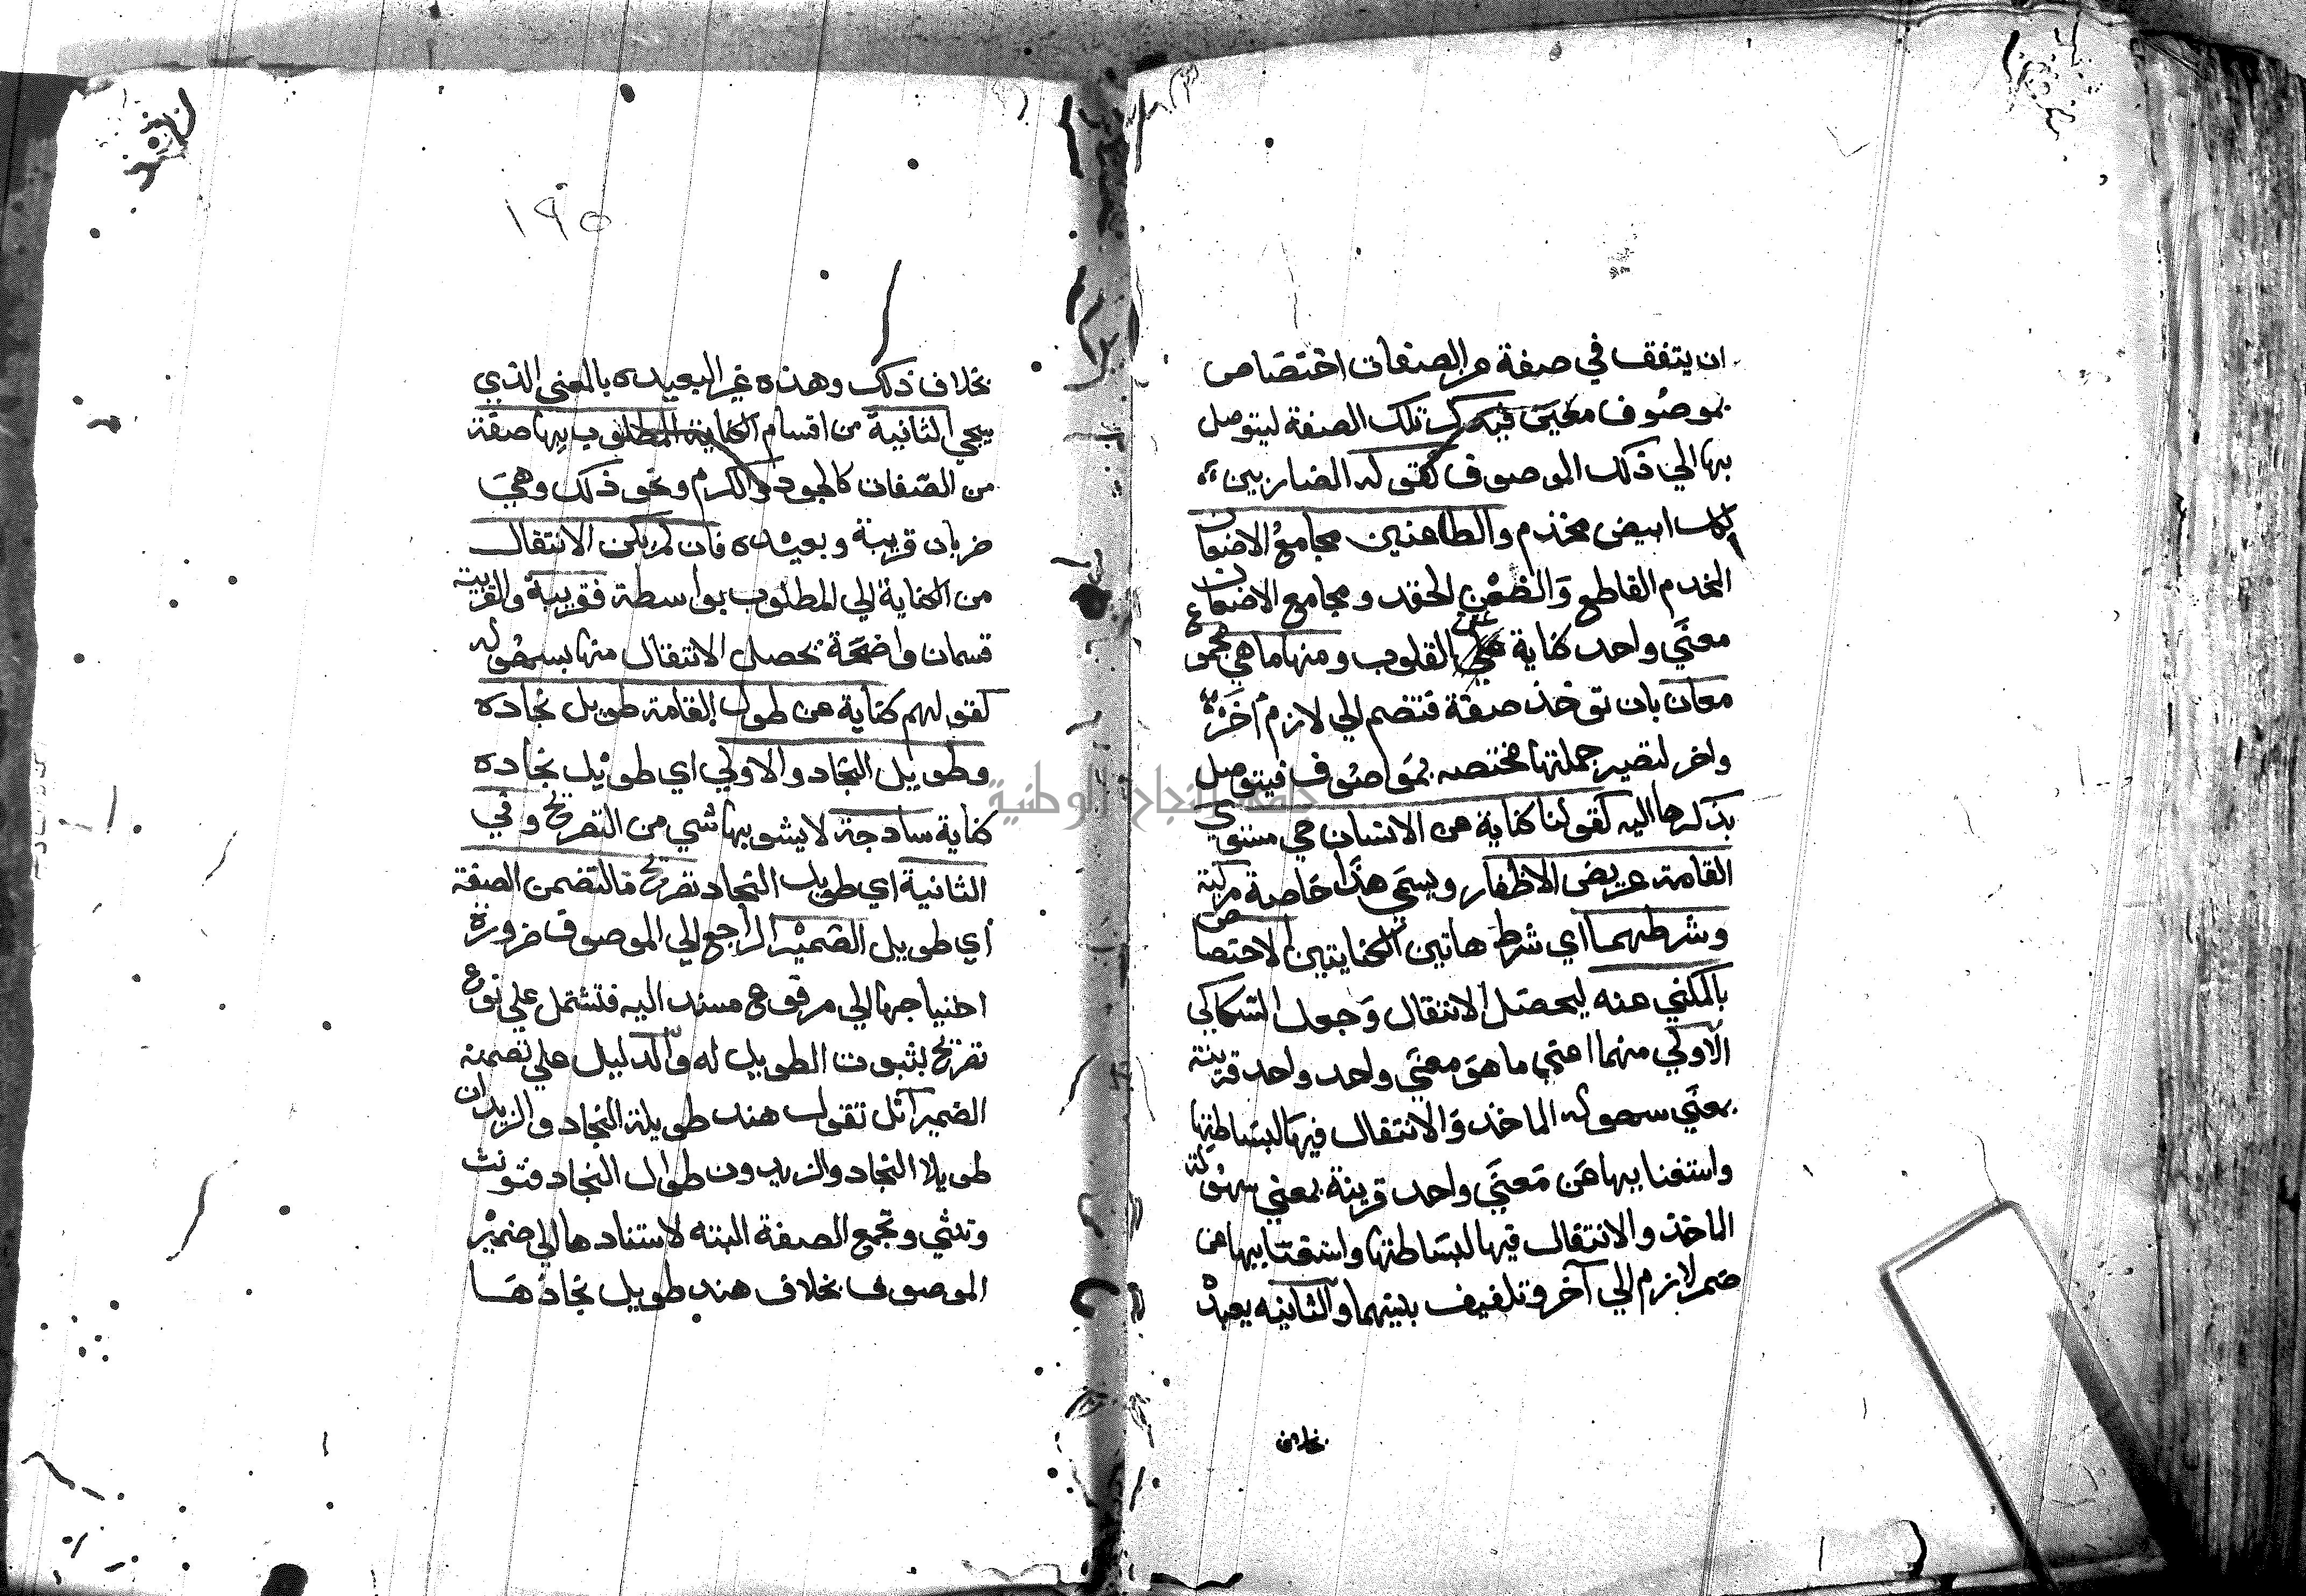 ان يتفقف في صفة من الصفات اختصاص
بموصوف معين فيذكر تلك الصفة ليتوصل
بها الي ذلك الموصوف كقوله الضاربين
بكل ابيض مخذم والطاعنين مجامع الاضغان
المخذم القاطع والضغن الحقد ومجامع الاضغان
معني واحد كناية عن القلوب ومنها ما هي مجموع
معان بان تؤخذ صفة فتضم الي لازم اخر
واخر لتصير جملتها مختصه بموصوف فيتوصل
بذكرها اليه كقولنا كناية عن الانسان حي مستوي
القامة عريض الاظفار ويسمي هذا خاصة مركبة
وشرطهما اي شرط هاتين الكنايتين الاختصاص
بالمكني عنه ليحصل الانتقال وجعل السكاكي
الاولي منهما اعني ما هو معني واحد واحد قريبة
بمعني سهوله الماخذ والانتقال فيها لبساطتها
واستغنايها عن معني واحد قرينة بمعني سهولة
الماخذ والانتقال فيها لبساطتها واستغنايها عن
ضم لازم الي آخر وتلفيف بينهما والثانيه بعيده
بخلاف
١٩٥
بخلاف ذلك وهذه غير البعيده بالمعني الذي
سيجي الثانية من اقسام الكناية المطلوب بها صفة
من الصفات كالجود والكرم ونحو ذلك وهي
ضربان قريبة وبعيده فان لم يكن الانتقال
من الكناية الي المطلوب بواسطة فقريبة والقريبة
قسمان واضحة يحصل الانتقال منها بسهوله
كقولهم كناية عن طول القامة طويل نجاده
وطويل النجاد والاولي اي طويل نجاده
كناية ساذجة لا يشوبها شي من التصريح وفي
الثانية اي طويل النجاد تصريح ما لتضمن الصفة
اي طويل الضمير الراجع الي الموصوف ضرورة
احتياجها الي مرفوع مسند اليه فتشتمل علي نوع
تصريح بثبوت الطويل له والدليل علي تضمنه
الضمير انك تقول هند طويلة النجاد والزيدان
طويلا النجاد والزيدون طوال النجاد فتونث
وتثني وتجمع الصفة البته لاسنادها الي ضمير
الموصوف بخلاف هند طويل نجادها
جامعة النجاح الوطنية